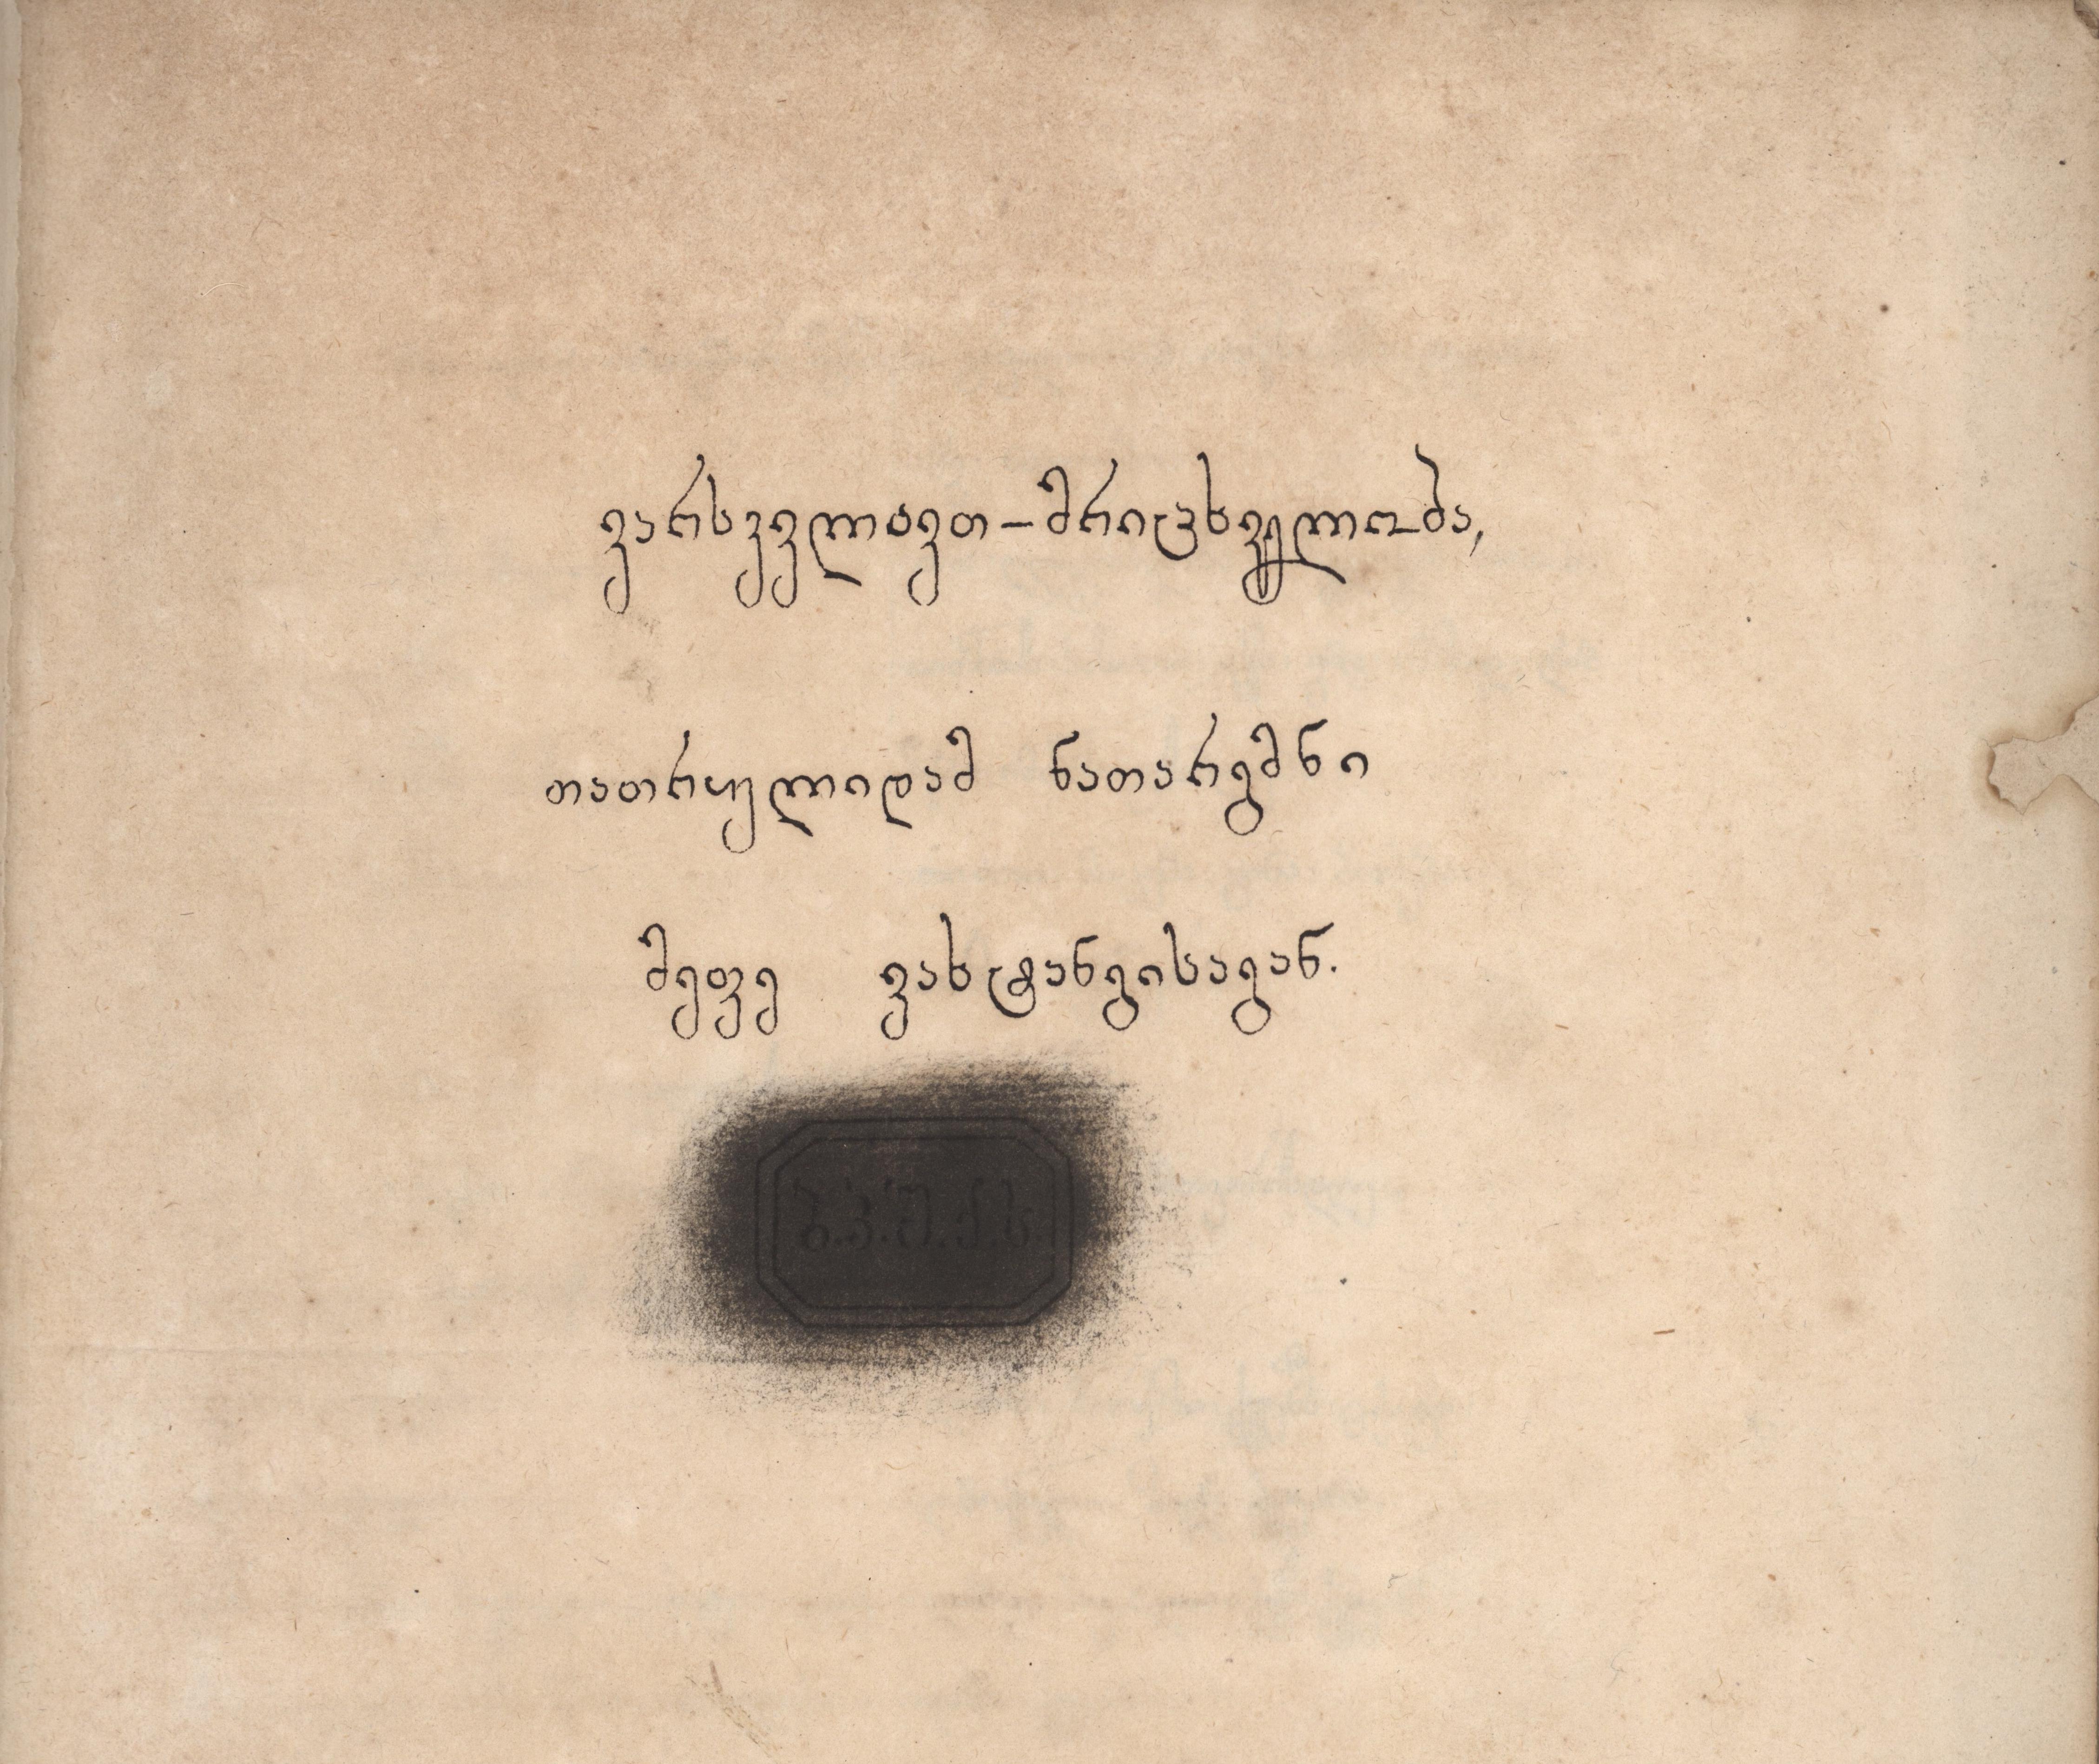 ვარსკვლავთ-მრიცხველობა,
თათრულიდამ ნათარგმნი
მეფე ვახტანგისაგან.